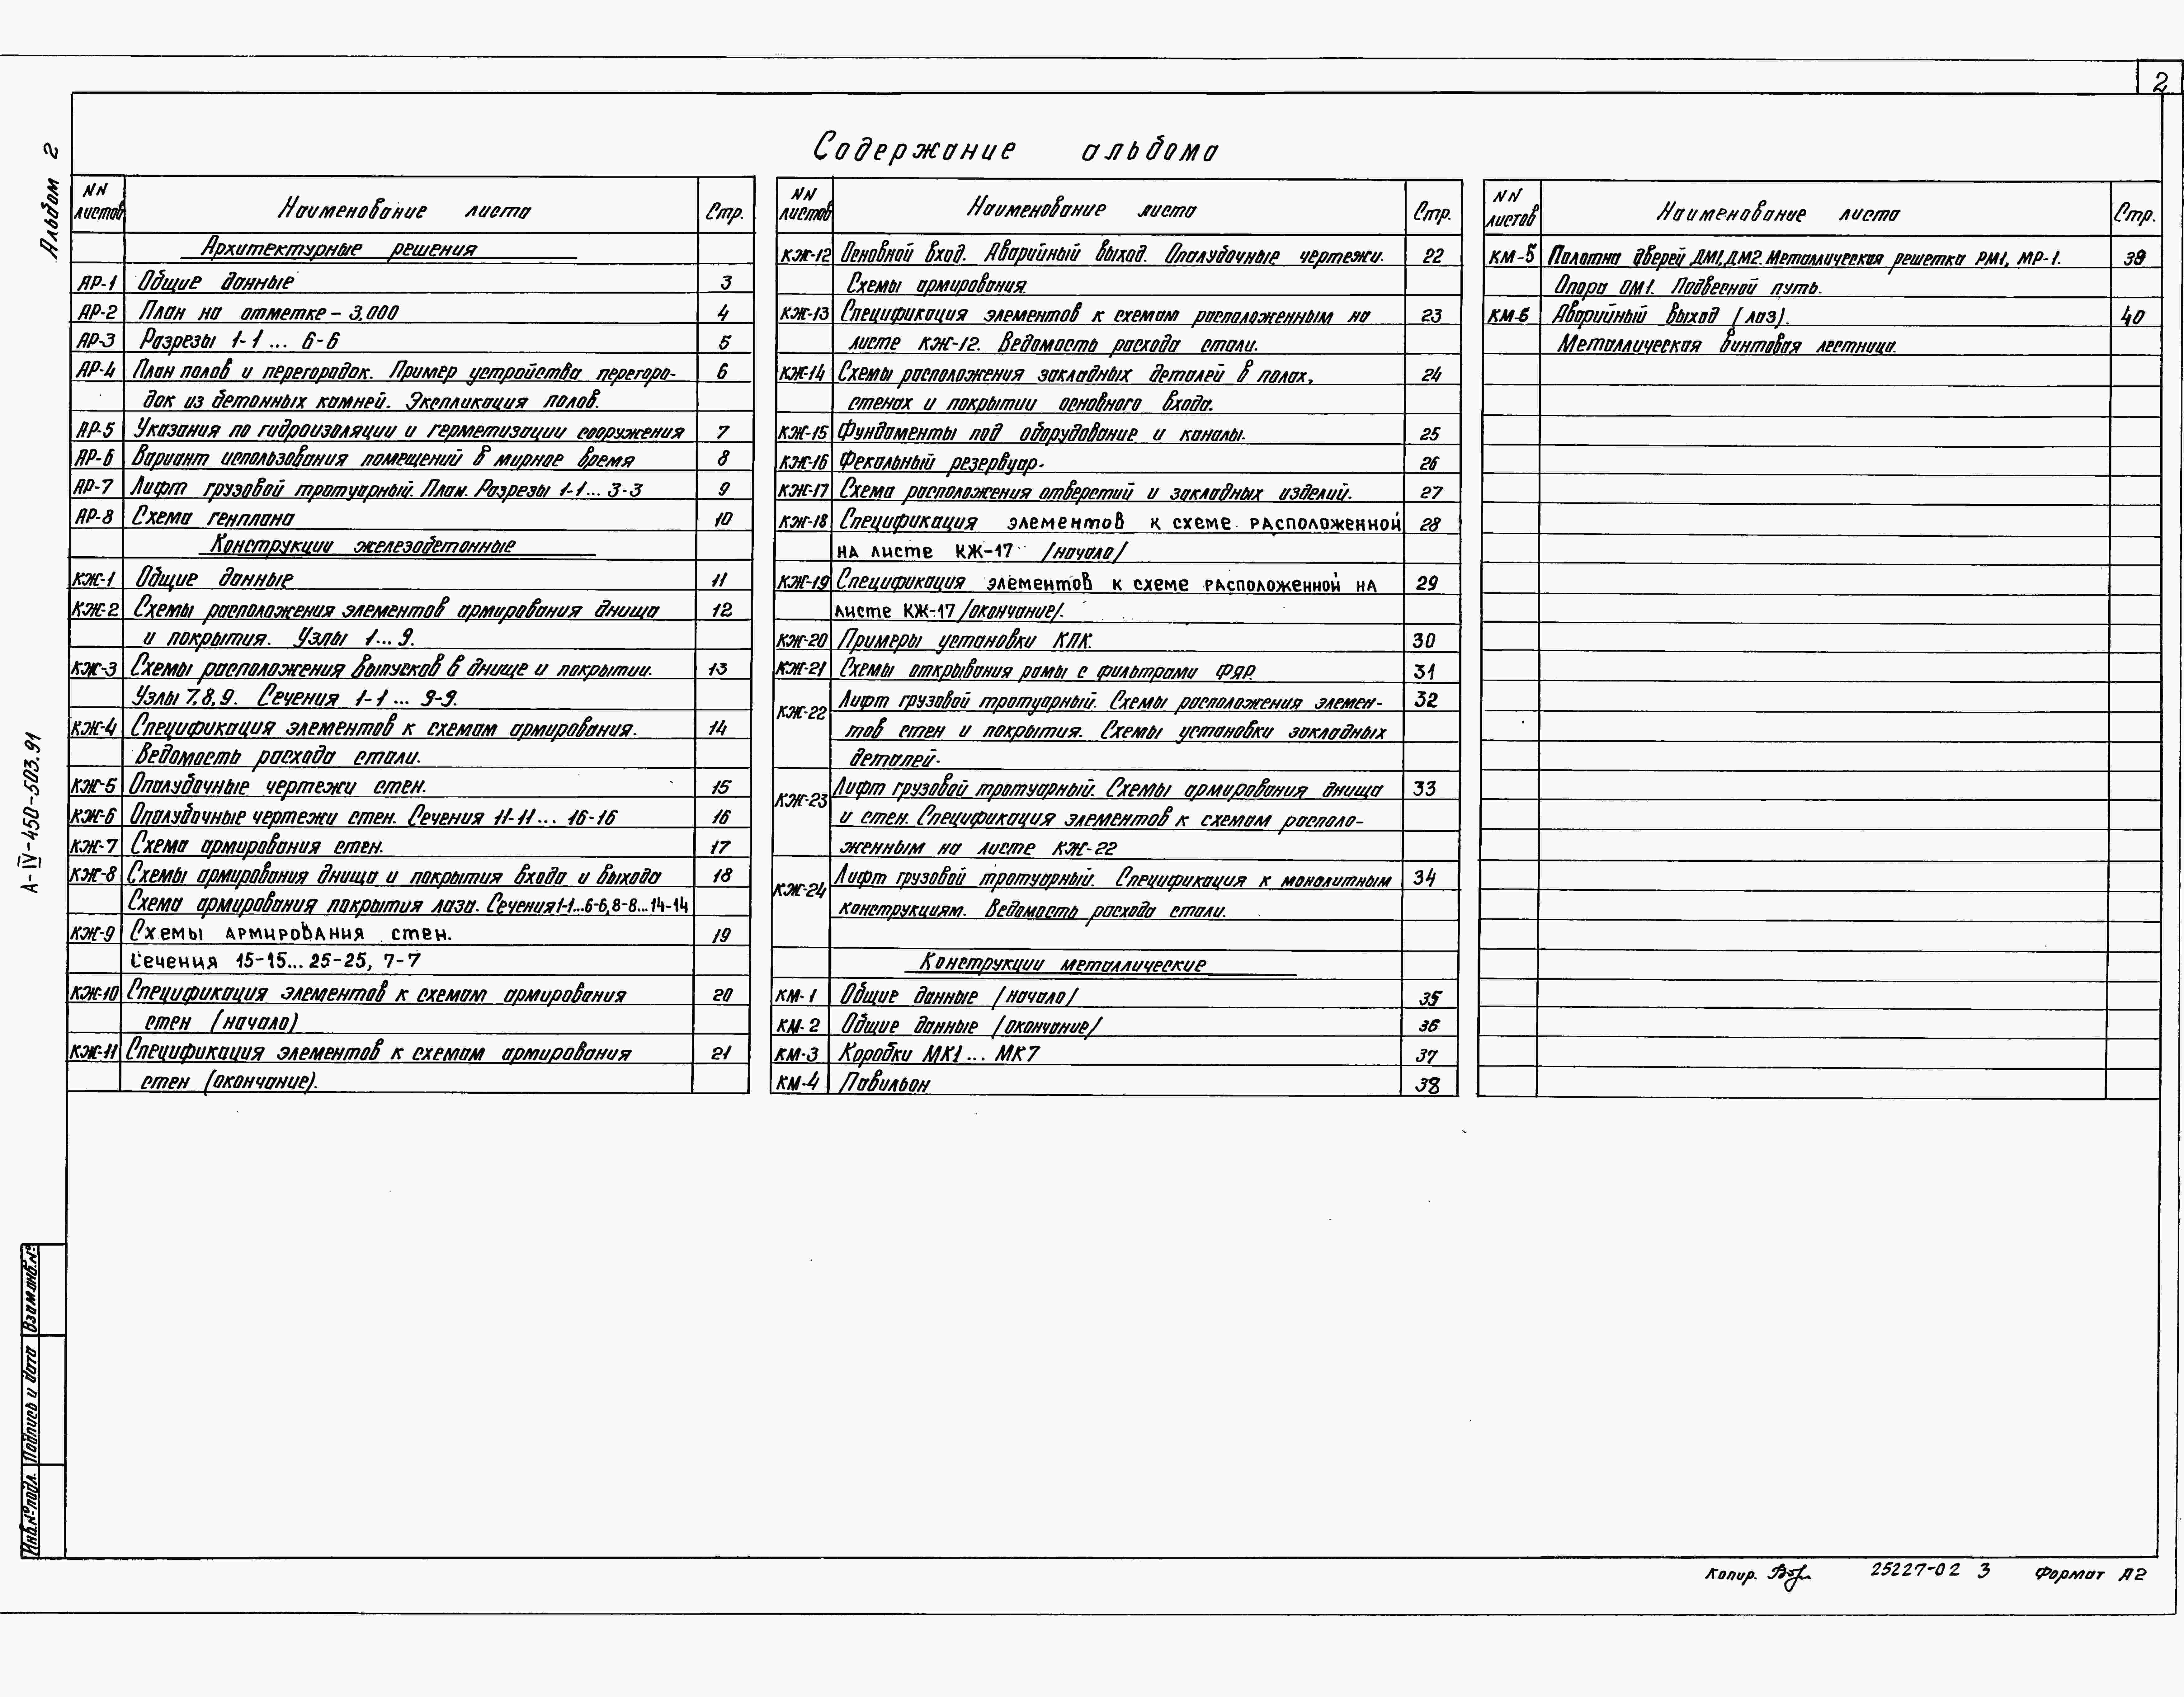 2
Альбом 2
А-IV-450-503.91
Содержание альбома
NN листов Наименование листа Стр.
Архитектурные решения
АР-1 Общие данные 3
АР-2 План на отметке - 3,000 4
АР-3 Разрезы 1-1 ... 6-6 5
АР-4 План полов и перегородок. Пример устройства перегоро- 6
док из бетонных камней. Экспликация полов.
АР-5 Указания по гидроизоляции и герметизации сооружения 7
АР-6 Вариант использования помещений в мирное время 8
АР-7 Лифт грузовой тротуарный. План. Разрезы 1-1... 3-3 9
АР-8 Схема генплана 10
Конструкции железобетонные
КЖ-1 Общие данные 11
КЖ-2 Схемы расположения элементов армирования днища 12
и покрытия. Узлы 1... 9.
КЖ-3 Схемы расположения выпусков в днище и покрытии. 13
Узлы 7,8,9. Сечения 1-1 ... 9-9.
КЖ-4 Спецификация элементов к схемам армирования. 14
Ведомость расхода стали.
КЖ-5 Опалубочные чертежи стен. 15
КЖ-6 Опалубочные чертежи стен. Сечения 11-11... 16-16 16
КЖ-7 Схема армирования стен. 17
КЖ-8 Схемы армирования днища и покрытия входа и выхода 18
Схема армирования покрытия лаза. Сечения 1-1...6-6, 8-8...14-14
КЖ-9 Схемы армирования стен. 19
Сечения 15-15... 25-25, 7-7
КЖ-10 Спецификация элементов к схемам армирования 20
стен (начало)
КЖ-11 Спецификация элементов к схемам армирования 21
стен (окончание).
NN листов Наименование листа Стр.
КЖ-12 Основной вход. Аварийный выход. Опалубочные чертежи. 22
Схемы армирования.
КЖ-13 Спецификация элементов к схемам расположенным на 23
листе КЖ-12. Ведомость расхода стали.
КЖ-14 Схемы расположения закладных деталей в полах, 24
стенах и покрытии основного входа.
КЖ-15 Фундаменты под оборудование и каналы. 25
КЖ-16 Фекальный резервуар. 26
КЖ-17 Схема расположения отверстий и закладных изделий. 27
КЖ-18 Спецификация элементов к схеме расположенной 28
на листе КЖ-17 /начало/
КЖ-19 Спецификация элементов к схеме расположенной на 29
листе КЖ-17 /окончание/.
КЖ-20 Примеры установки КПК. 30
КЖ-21 Схемы открывания рамы с фильтрами ФЯР. 31
КЖ-22 Лифт грузовой тротуарный. Схемы расположения элемен- 32
тов стен и покрытия. Схемы установки закладных
деталей.
КЖ-23 Лифт грузовой тротуарный. Схемы армирования днища 33
и стен. Спецификация элементов к схемам располо-
женным на листе КЖ-22
КЖ-24 Лифт грузовой тротуарный. Спецификация к монолитным 34
конструкциям. Ведомость расхода стали.
Конструкции металлические
КМ-1 Общие данные /начало/ 35
КМ-2 Общие данные /окончание/ 36
КМ-3 Коробки МК1... МК7 37
КМ-4 Павильон 38
NN листов Наименование листа Стр.
КМ-5 Полотна дверей ДМ1, ДМ2. Металлическая решетка РМ1, МР-1. 39
Опора ОМ1. Подвесной путь.
КМ-6 Аварийный выход (лаз). 40
Металлическая винтовая лестница.
Взам.инв.№
Подпись и дата
Инв.№ подл.
Копир. 25227-02 3 Формат А2